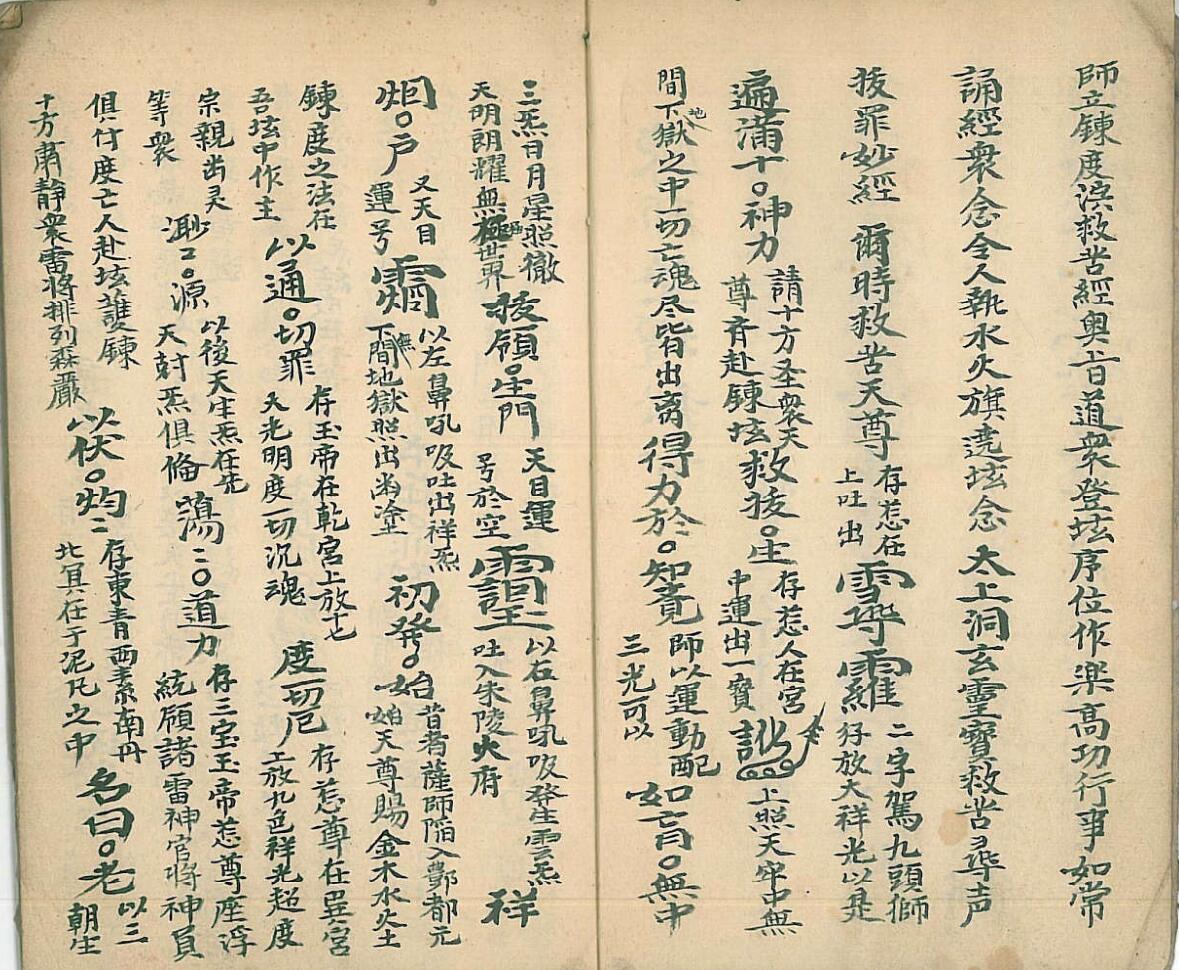 師立鍊度演救苦經奥旨道衆登坛序位作楽高功行事如常
誦經衆念令人執水火旗遶坛念太上洞玄靈寶救苦尋声
拔罪妙經 爾時救苦天尊 存慈在上吐出 二字駕九頭獅 好放大祥光以是
遍滿十。神力 請十方圣衆天尊斉赴鍊坛 救拔。生 存慈人在宮中運出一寳 上照天牢中無
間下地獄之中一切亡魂尽皆出离 得力於。知覓 師以運動配三光可以 如盲。無中
三炁日月星照徹天明朗耀無極世界 拔領。生門 天目運号於空 以右鼻吼吸發生雲炁吐入朱陵火府 祥
烟。戸 又天目運号 以左鼻吼吸吐出祥炁下無間地獄照出幽塗 初發。始 昔者薩師陷入酆都元始天尊賜金木水火土
鍊度之法在吾坛中作主 以通。切罪 存玉帝在乾宮上放十七天光明度一切沉魂 度一切厄 存慈尊在巽宮上放九色祥光超度
宗親出灵等衆 渺〻。源 以後天生炁在先天討炁俱倫 蕩〻。道力 存三宝玉帝慈尊座浮統領諸雷神官將神員
俱付度亡人赴坛護鍊十方肅静衆雷将排列森嚴 以伏。灼〻 存東青西素南丹北冥在于泥凡之中 名曰。老 以三朝生